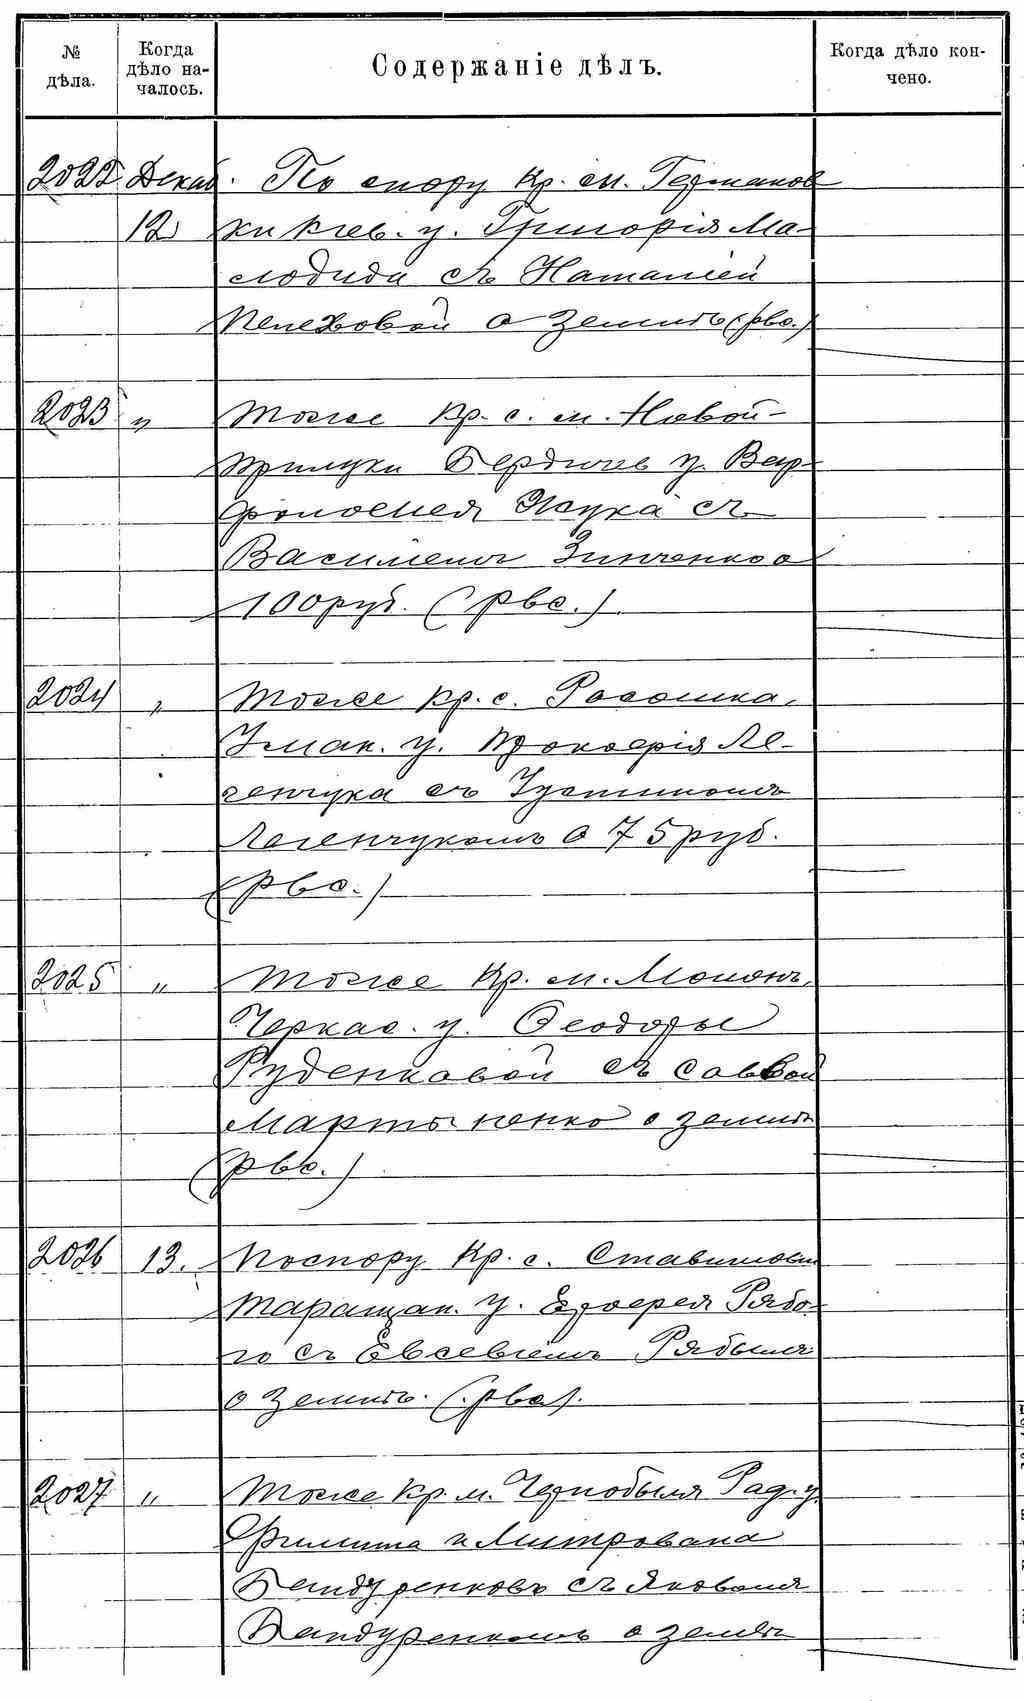 № дѣла.
Когда дѣло началось.
Содержаніе дѣлъ.
Когда дѣло кончено.
2022 Декаб. По спору кр. м. Германов
12 ки Кіев. у. Григорія Ма-
людида съ Наталіей
Пелеховой о землѣ (рвс.)
2023 „ Тоже кр. с. м. Новой-
прилуки Бердичев у. Вар-
фоломея Жука съ
Василіемъ Зинченко о
100 руб. (рвс.).
2024 „ Тоже кр. с. Росошка,
Уман. у. Прокофія Ле-
генчука съ Устиномъ
Легенчукомъ о 75 руб.
(рвс.)
2025 „ Тоже кр. м. Мошонъ,
Черкас. у. Ѳеодоры
Руденковой съ Саввой
Мартыненко о землѣ
(рвс.)
2026 13. По спору кр. с.
Таращан. у. Рябо-
го съ Евсевіемъ Рябымъ
о землѣ. (рвс).
2027 „ Тоже кр. м. Чернобыля Рад. у.
Филипа и Митрофана
Бандуренковъ съ Яковомъ
Бандуренкомъ о землѣ